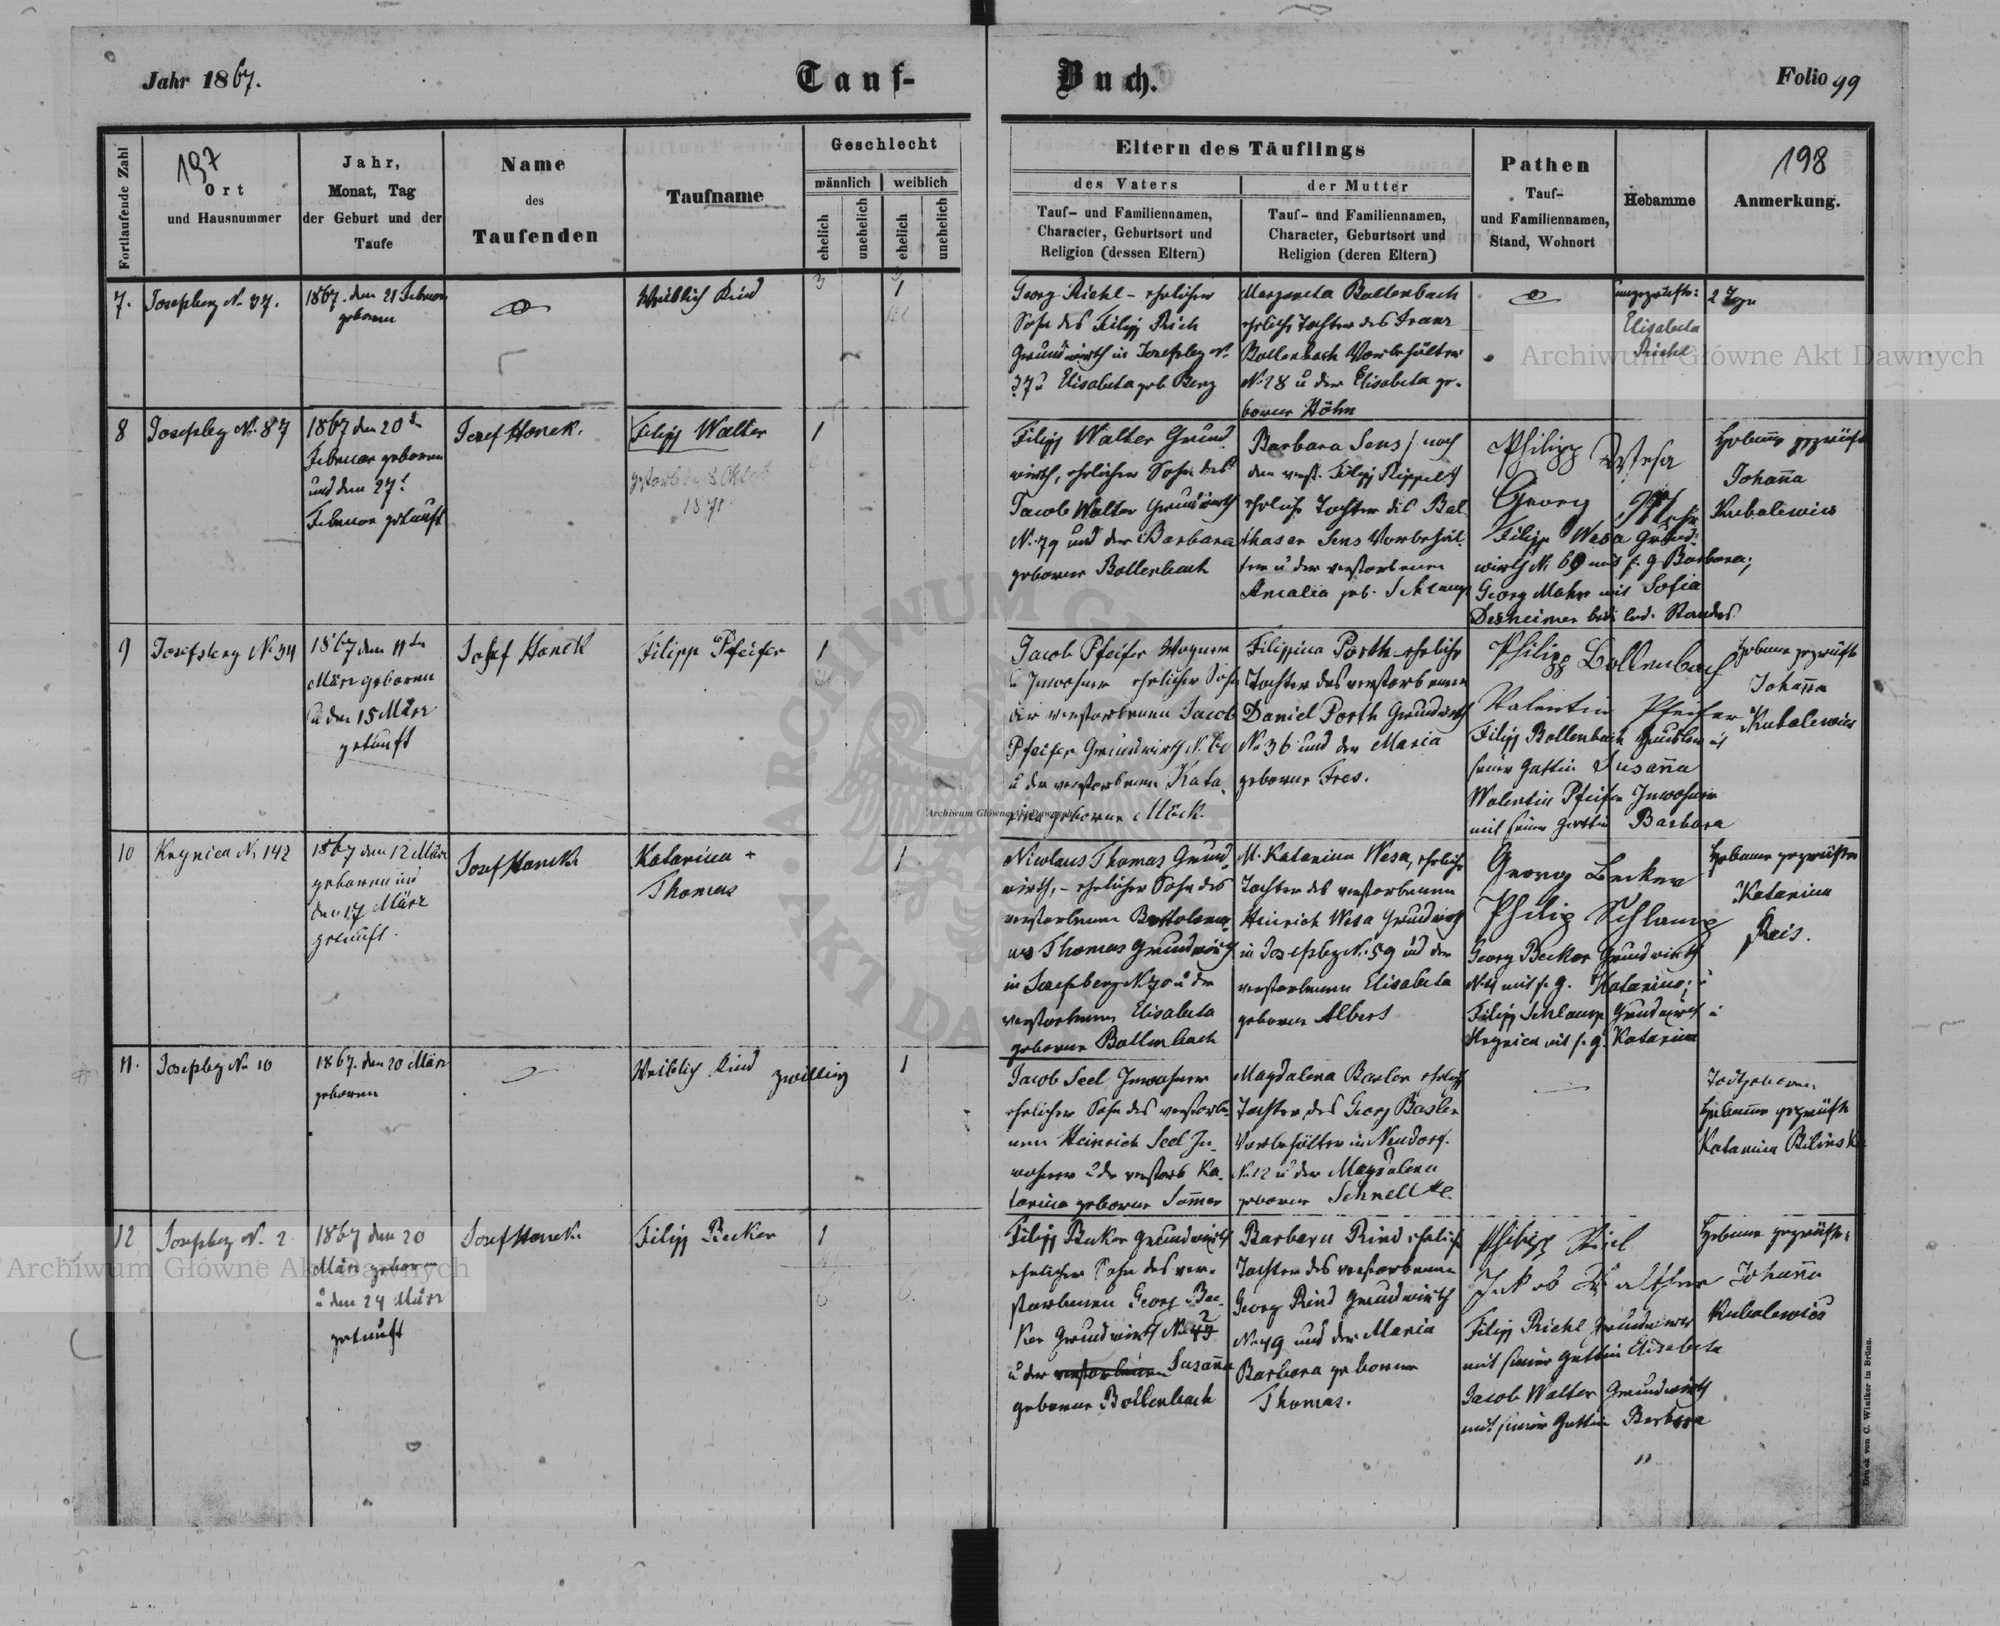 Jahr 1867.
Tauf-
Buch.
Folio 99
Fortlaufende Zahl
197
Ort
und Hausnummer
Jahr,
Monat, Tag
der Geburt und der
Taufe
Name
des
Taufenden
Taufname
Geschlecht
männlich
weiblich
ehelich
unehelich
ehelich
unehelich
Eltern des Täuflings
des Vaters
der Mutter
Tauf- und Familiennamen,
Character, Geburtsort und
Religion (dessen Eltern)
Tauf- und Familiennamen,
Character, Geburtsort und
Religion (deren Eltern)
Pathen
Tauf-
und Familiennamen,
Stand, Wohnort
Hebamme
198
Anmerkung.
7.
Josepberg N. 37.
1867. den 21 Februar
geboren
Weiblich Kind
1
Georg Riehl - ehelicher
Sohn des Filipp Rieh
Grundwirth in Josefsbg N.
37 u Elisabeta geb Berg
Margareta Bollenbach
ehelich Tochter des Franz
Bollenbach Vorbehälter
N. 28 u der Elisabeta ge-
borner Höhn
Elisabeta
Riehl
2 Tage
8
Josepbeg N. 87
1867 den 20
Februar geboren
und den 27
Februar getauft
Josef Hanek.
Filipp Walter
1871
1
Filipp Walter Grund
wirth, ehelicher Sohn des
Jacob Walter Grundwirth
N. 79 und der Barbara
geborner Bollenbach
Barbara Sens / nach
dem verst. Filipp Rippel
ehelich Tochter des Bal
thasar Sens Vorbehäl-
ter u der verstorbenen
Amalia geb. Schlamp
Philipp Wesa
Georg
Filipp Wesa Grund-
wirth N. 69 mit s. g. Barbara;
Georg Mahr mit Sofia
Desheimer beide led. Standes
Hebamme geprüft
Johanna
Kubalewics
9
Josefsberg N. 34
1867 den 11ten
März geboren
u den 15 März
getauft
Josef Hanek
Filipp Pfeifer
1
Jacob Pfeifer Wagner
u Inwohner ehelicher Sohn
der verstorbenen Jacob
Pfeifer Grundwirth N.
u der verstorbenen Kata-
rina geborner Mück.
Filippina Porth ehelich
Tochter des verstorbenen
Daniel Porth Grundwirth
N. 36 und der Maria
geborner Fres.
Philipp Bollenbach
Valentin Pfeifer
Filipp Bollenbach mit
seiner Gattin Susanna
Walentin Pfeifer Inwohner
mit seiner Gattin Barbara
Hebamme geprüft
Johanna
Kubalewics
10
Krynica N. 142
1867 den 12 März
geboren und
den 17 März
getauft.
Josef Hanek
Katarina +
Thomas
1
Nicolaus Thomas Grund
wirth, - ehelicher Sohn des
verstorbenen Bartolomä-
us Thomas Grundwirth
in Josefsberg N. 70 u der
verstorbenen Elisabeta
geborner Bollenbach
M. Katarina Wesa, ehelich
Tochter des verstorbenen
Heinrich Wesa Grundwirth
in Josefsbg N. 59 und der
verstorbenen Elisabeta
geborner Albert
Georg Becker
Philip Schlamp
Georg Becker Grundwirth
mit s. g. Katarina;
Filipp Schlamp Grundwirth
Krynica mit s. g. Katarina
Hebamme geprüfte
Katarina
Reis.
11.
Josepbg N. 10
1867. den 20 März
geboren
Weiblich Kind zwilling
1
Jacob Seel Inwohner
ehelicher Sohn des verstorbe-
nen Heinrich Seel In-
wohner u der verstorb Ka-
tarina geborner Sommer
Magdalena Basler ehelich
Tochter des Georg Basler
Vorbehälter in Neudorf.
N. 12 u der Magdalena
geborner Schnell
Todtgeboren
Hebamme geprüft
Katarina Bilinska
12
Josepbeg N. 2
1867 den 20
März geboren
u den 24 März
getauft
Josef Hanek
Filipp Becker
1
Filipp Becker Grundwirth
ehelicher Sohn des ver-
storbenen Georg Bec-
ker Grundwirth N.
u der verstorbenen Susanna
geborner Bollenbach
Barbara Rind ehelich
Tochter des verstorbenen
Georg Rind Grundwirth
N. 49 und der Maria
Barbara geborner
Thomas.
Philipp Riel
Jakob Walther
Filipp Riehl Grundwirth
mit seiner Gattin Elisabeta
Jacob Walter Grundwirth
mit seiner Gattin Barbara
Hebamme geprüfte
Johanna
Kubalewics
Druck von C. Winiker in Brünn.
Archiwum Główne Akt Dawnych
Archiwum Główne Akt Dawnych
Archiwum Główne Akt Dawnych